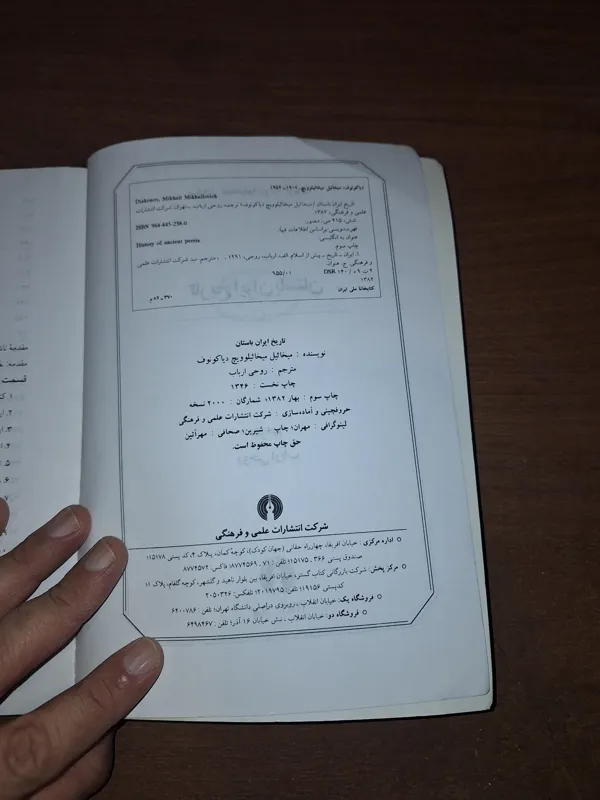 دیاکونوف، میخائیل میخائیلوویچ، ۱۹۰۷ - ۱۹۵۴
Diakonov, Mikhail Mikhailovich
تاریخ ایران باستان / میخائیل میخائیلوویچ دیاکونوف؛ ترجمه روحی ارباب. ـ تهران: شرکت انتشارات
علمی و فرهنگی، ۱۳۸۲.
شش، ۴۱۵ ص.: مصور.
ISBN 964-445-258-0
فهرستنویسی براساس اطلاعات فیپا.
عنوان به انگلیسی:
History of ancient persia
چاپ سوم.
۱. ایران ـ تاریخ ـ پیش از اسلام. الف. ارباب، روحی، ۱۲۹۱ - ، مترجم. ب. شرکت انتشارات علمی
و فرهنگی. ج. عنوان.
۲ ت ۹ د / ۱۴۰ DSR
۹۵۵/۰۱
۱۳۸۲
کتابخانه ملی ایران
۳۷۰ـ۸۲ م
تاریخ ایران باستان
نویسنده : میخائیل میخائیلوویچ دیاکونوف
مترجم : روحی ارباب
چاپ نخست : ۱۳۴۶
چاپ سوم : بهار ۱۳۸۲؛ شمارگان : ۲۰۰۰ نسخه
حروفچینی و آماده‌سازی : شرکت انتشارات علمی و فرهنگی
لیتوگرافی : مهران؛ چاپ : شیرین؛ صحافی : مهرآئین
حق چاپ محفوظ است.
شرکت انتشارات علمی و فرهنگی
○ اداره مرکزی : خیابان افریقا، چهارراه حقانی (جهان کودک)، کوچه کمان، پلاک ۴، کد پستی ۱۵۱۷۸
صندوق پستی ۳۶۶ ـ ۱۵۱۷۵؛ تلفن : ۷۱ ـ ۸۷۷۴۵۶۹؛ فاکس: ۸۷۷۴۵۷۲
○ مرکز پخش : شرکت بازرگانی کتاب گستر، خیابان افریقا، بین بلوار ناهید و گلشهر، کوچه گلفام، پلاک ۱۱
کدپستی ۱۹۱۵۶؛ تلفن: ۲۰۱۹۷۹۵؛ تلفکس: ۲۰۵۰۳۲۶
○ فروشگاه یک: خیابان انقلاب ـ روبروی دراصلی دانشگاه تهران؛ تلفن : ۶۴۰۰۷۸۶
○ فروشگاه دو: خیابان انقلاب ـ نبش خیابان ۱۶ آذر؛ تلفن : ۶۴۹۸۴۶۷